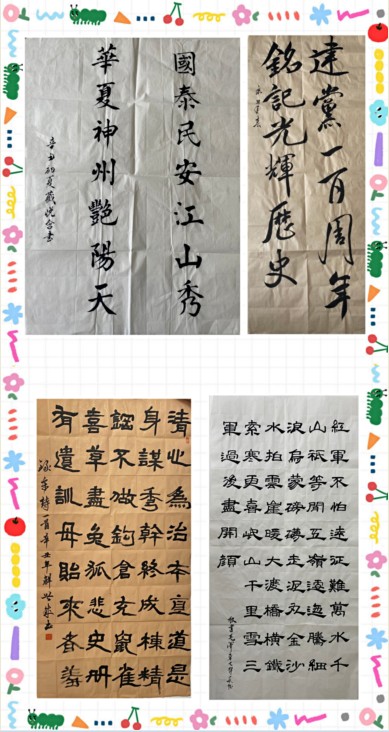 國泰民安江山秀
華夏神州艷陽天
辛丑初夏
建黨一百周年
銘記光輝歷史
清心為治本直道是
身謀秀幹終成棟精
鋼不做鈎倉充鼠雀
喜草盡兔狐悲史册
有遺訓毋貽來者羞
詩一首辛丑年
紅軍不怕遠征難萬水千
山祇等閒五嶺逶迤騰細
浪烏蒙磅礴走泥丸金沙
水拍雲崖暖大渡橋橫鐵
索寒更喜岷山千里雪三
軍過後盡開顏